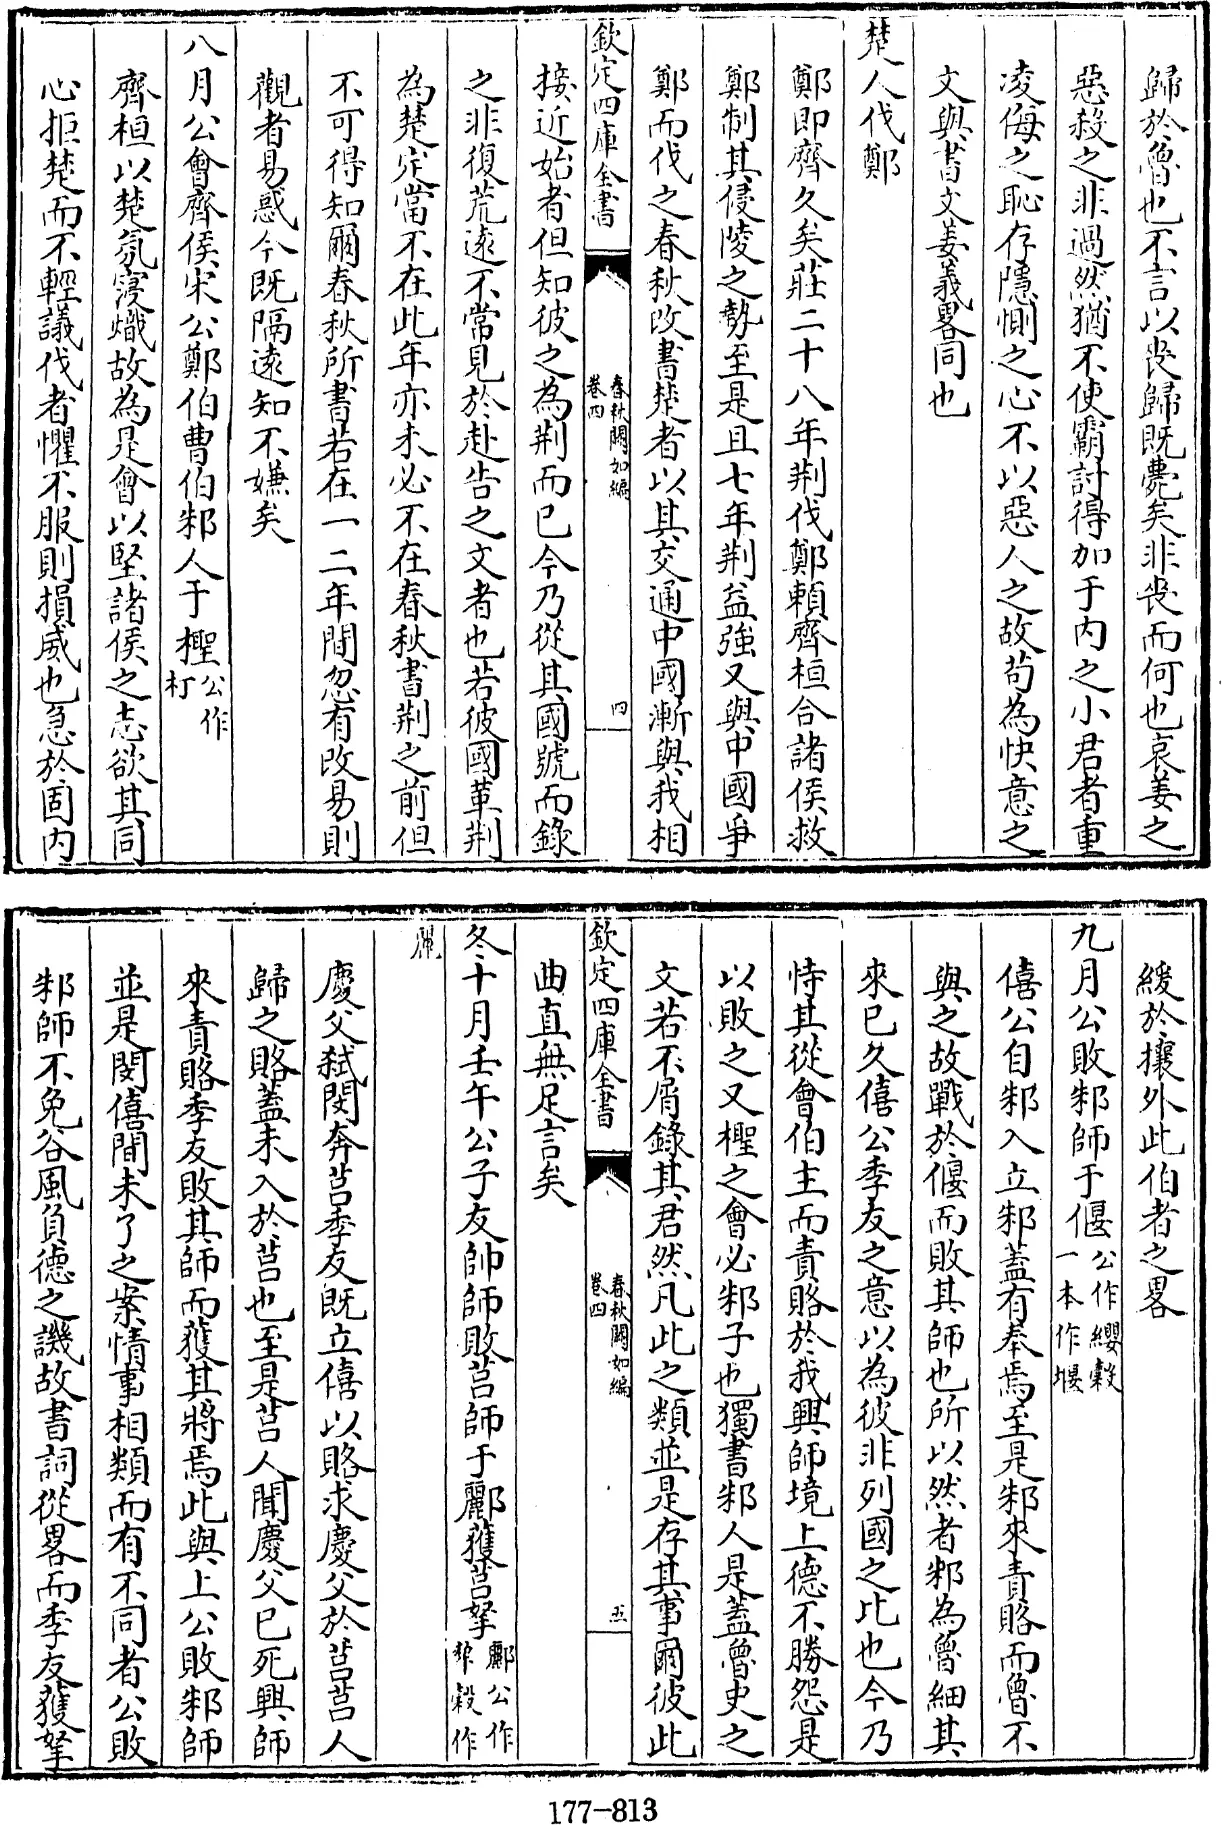 歸於魯也不言以喪歸既薨矣非喪而何也哀姜之
惡殺之非過然猶不使霸討得加于内之小君者重
凌侮之恥存隱惻之心不以惡人之故茍為快意之
文與書文姜義畧同也
楚人伐鄭
鄭即齊久矣莊二十八年荆伐鄭賴齊桓合諸侯救
鄭制其侵陵之勢至是且七年荆益強又與中國爭
鄭而伐之春秋改書楚者以其交通中國漸與我相
欽定四庫全書
春秋闕如編
卷四
四
接近始者但知彼之為荆而已今乃從其國號而錄
之非復荒遠不常見於赴告之文者也若彼國革荆
為楚定當不在此年亦未必不在春秋書荆之前但
不可得知爾春秋所書若在一二年間忽有改易則
觀者易惑今既隔遠知不嫌矣
八月公會齊侯宋公鄭伯曹伯邾人于檉公作
朾
齊桓以楚氛寖熾故為是會以堅諸侯之志欲其同
心拒楚而不輕議伐者懼不服則損威也急於固内
緩於攘外此伯者之畧
九月公敗邾師于偃公作纓穀
一本作堰
僖公自邾入立邾蓋有奉焉至是邾來責賂而魯不
與之故戰於偃而敗其師也所以然者邾為魯細其
來已久僖公季友之意以為彼非列國之比也今乃
恃其從會伯主而責賂於我興師境上德不勝怨是
以敗之又檉之會必邾子也獨書邾人是蓋魯史之
文若不屑錄其君然凡此之類並是存其事爾彼此
欽定四庫全書
春秋闕如編
卷四
五
曲直無足言矣
冬十月壬午公子友帥師敗莒師于酈獲莒拏酈公作
犂穀作
麗
慶父弑閔奔莒季友既立僖以賂求慶父於莒莒人
歸之賂蓋未入於莒也至是莒人聞慶父已死興師
來責賂季友敗其師而獲其將焉此與上公敗邾師
並是閔僖間未了之案情事相類而有不同者公敗
邾師不免谷風負德之譏故書詞從畧而季友獲拏
177-813